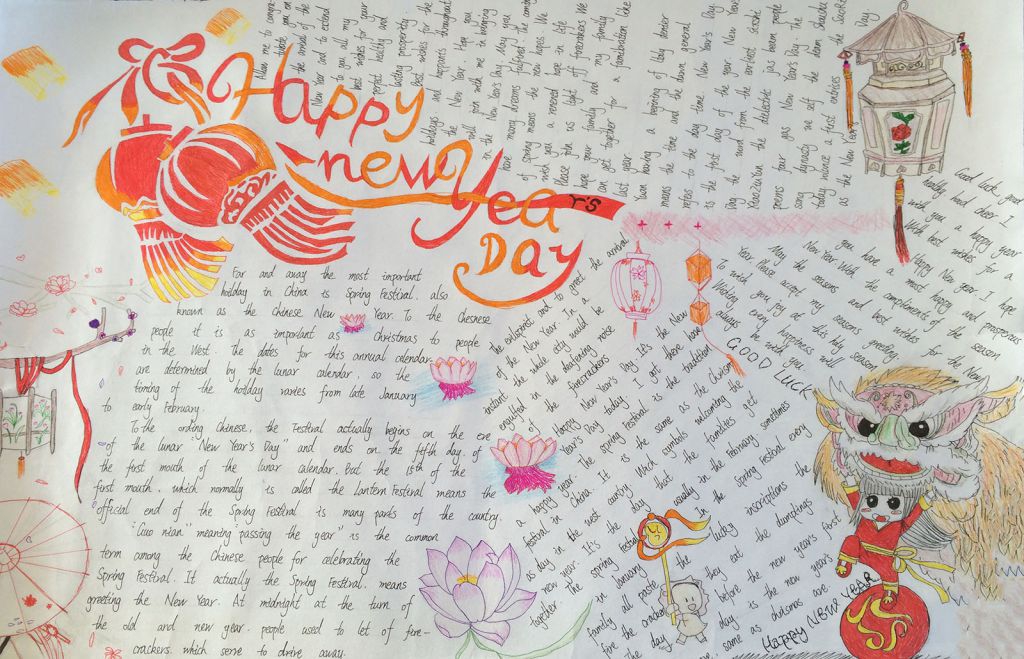 Happy
new Year's
Day
Far and away the most important
holiday in China is Spring Festival. also
known as the Chinese New Year. To the Chesnese
people it is as important as christmas to people
in the West. The dates for this annual calendar
are determined by the lunar calendar, so the
timing of the holiday varies from late January
to early February.
To the ording Chinese, the Festival actually begins on the eve
of the lunar "New Year's Day" and ends on the fifth day of
the first mouth of the lunar calendar. Boat the 15th of the
first mouth. which normally is called the Lantern Festival means the
official end of the Spring Festival is many parts of the country.
"Guo nian" meaning "passing the year" is the common
term among the Chinese people for celebrating the
Spring Festival. It actually the Spring Festival. means
greeting the New Year. At midnight at the turn of
the old and new year. people used to let of fire-
crackers. which serve to drive away.
the evil spirit and to greet the arrival
of the New Year. In a
instant the whole city would be
engulfed in the deafening noise
firecrackers
Happy New Year's Day. It's the New
Year's Day today I got there hope
a happy year. The Spring Festival is the tradition
festival in China. It is the same as the Chrisms
as day in the west cuntry. Wach symbols welcoming the
new year. It's the day that the families get
together. The spring festival usually in the February sometimes
in January
family all paste the lucky inscriptions
before they eat the dumplings
day is the new year's first
same as chrismas are
Allow me to congra-
tulate you on
the arrival of the
New Year and to extend
to you all my
best wishes for your
perfect healthy and
lasting prosperity
Best wishes for the
holidays and happniss throughout
the New Year. Hope you
will join with me in bringing
in the New Year's Day. May you
have many dreams fulfilled the comin
of spring means the new hopes We
wish you a renewed hope in life
Please join us light off firecrakers We
hope your family and my family
can get together for a celebration like
last year
Yuan having a begining of they danier
means the time and the dawn general
refers to the day time. New Year's Day
is the first day of the year New Year's
Day the word from the earliest seicte
people
poems four gas New Year's Day. the
song dynasty we self the dream
today
as the New Year's Day.
Good luck, good
health, hood cheer. I
wish you a happy year
With best wishes for a
Happy New year I hope
you have a most happy and prosperous
New Year With the compliments of the season
May the seasons and best wishes for the New
Year Please accept my seasons greeting
To wich you joy at this holy season
Wishing every happiness will
always be with you.
GOOD LUCK
HAPPY NEW YEAR